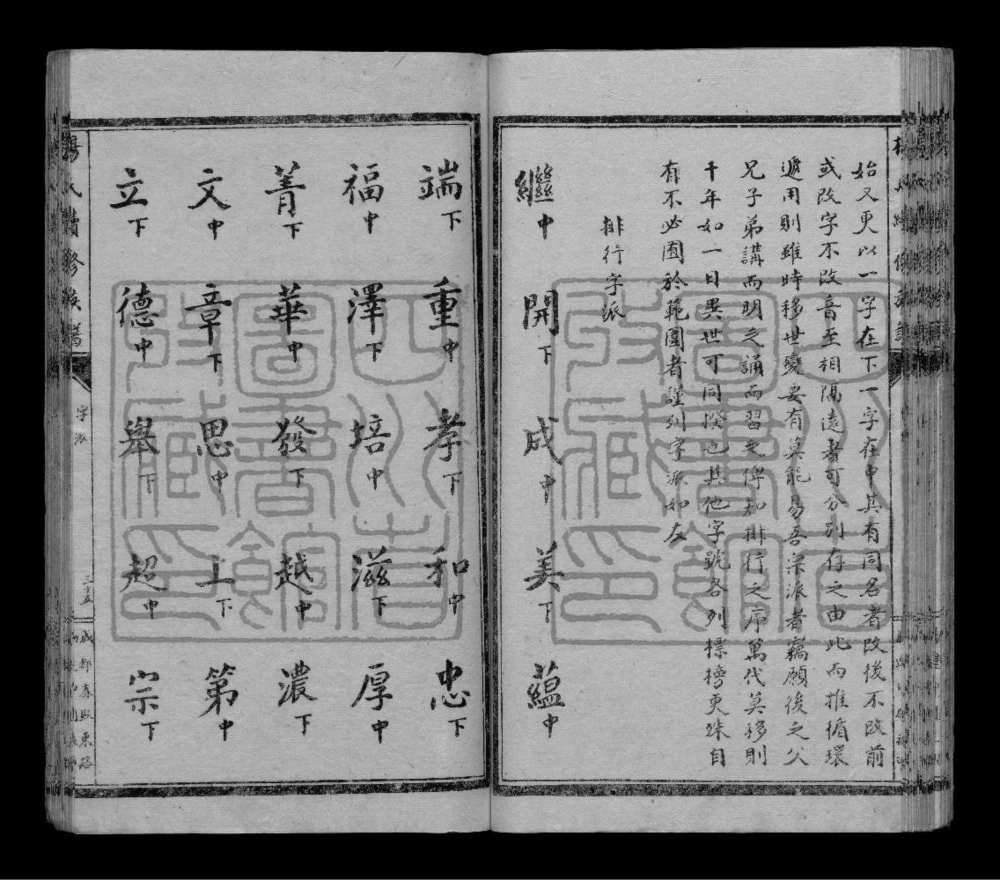 始又更以一字在下一字在中其有同名者改後不改前
或改字不改音至相隔遠者可分別存之由此而推循環
遞用則雖時移世變要有莫能易吾宗派者竊願後之父
兄子弟講而明之誦而習之俾知排行之序萬代莫移則
千年如一日異世可同揆也其他字號各列標榜更殊自
有不必囿於範圍者謹列字派如左
排行字派
繼中 開下 成中 美下 蘊中
端下 重中 孝下 和中 忠下
福中 澤下 培中 滋下 厚中
菁下 華中 發下 越中 濃下
文中 章下 思中 上下 第中
立下 德中 舉下 超中 宗下
楊氏續修族譜
字派
三十五
四川省圖書館藏書印